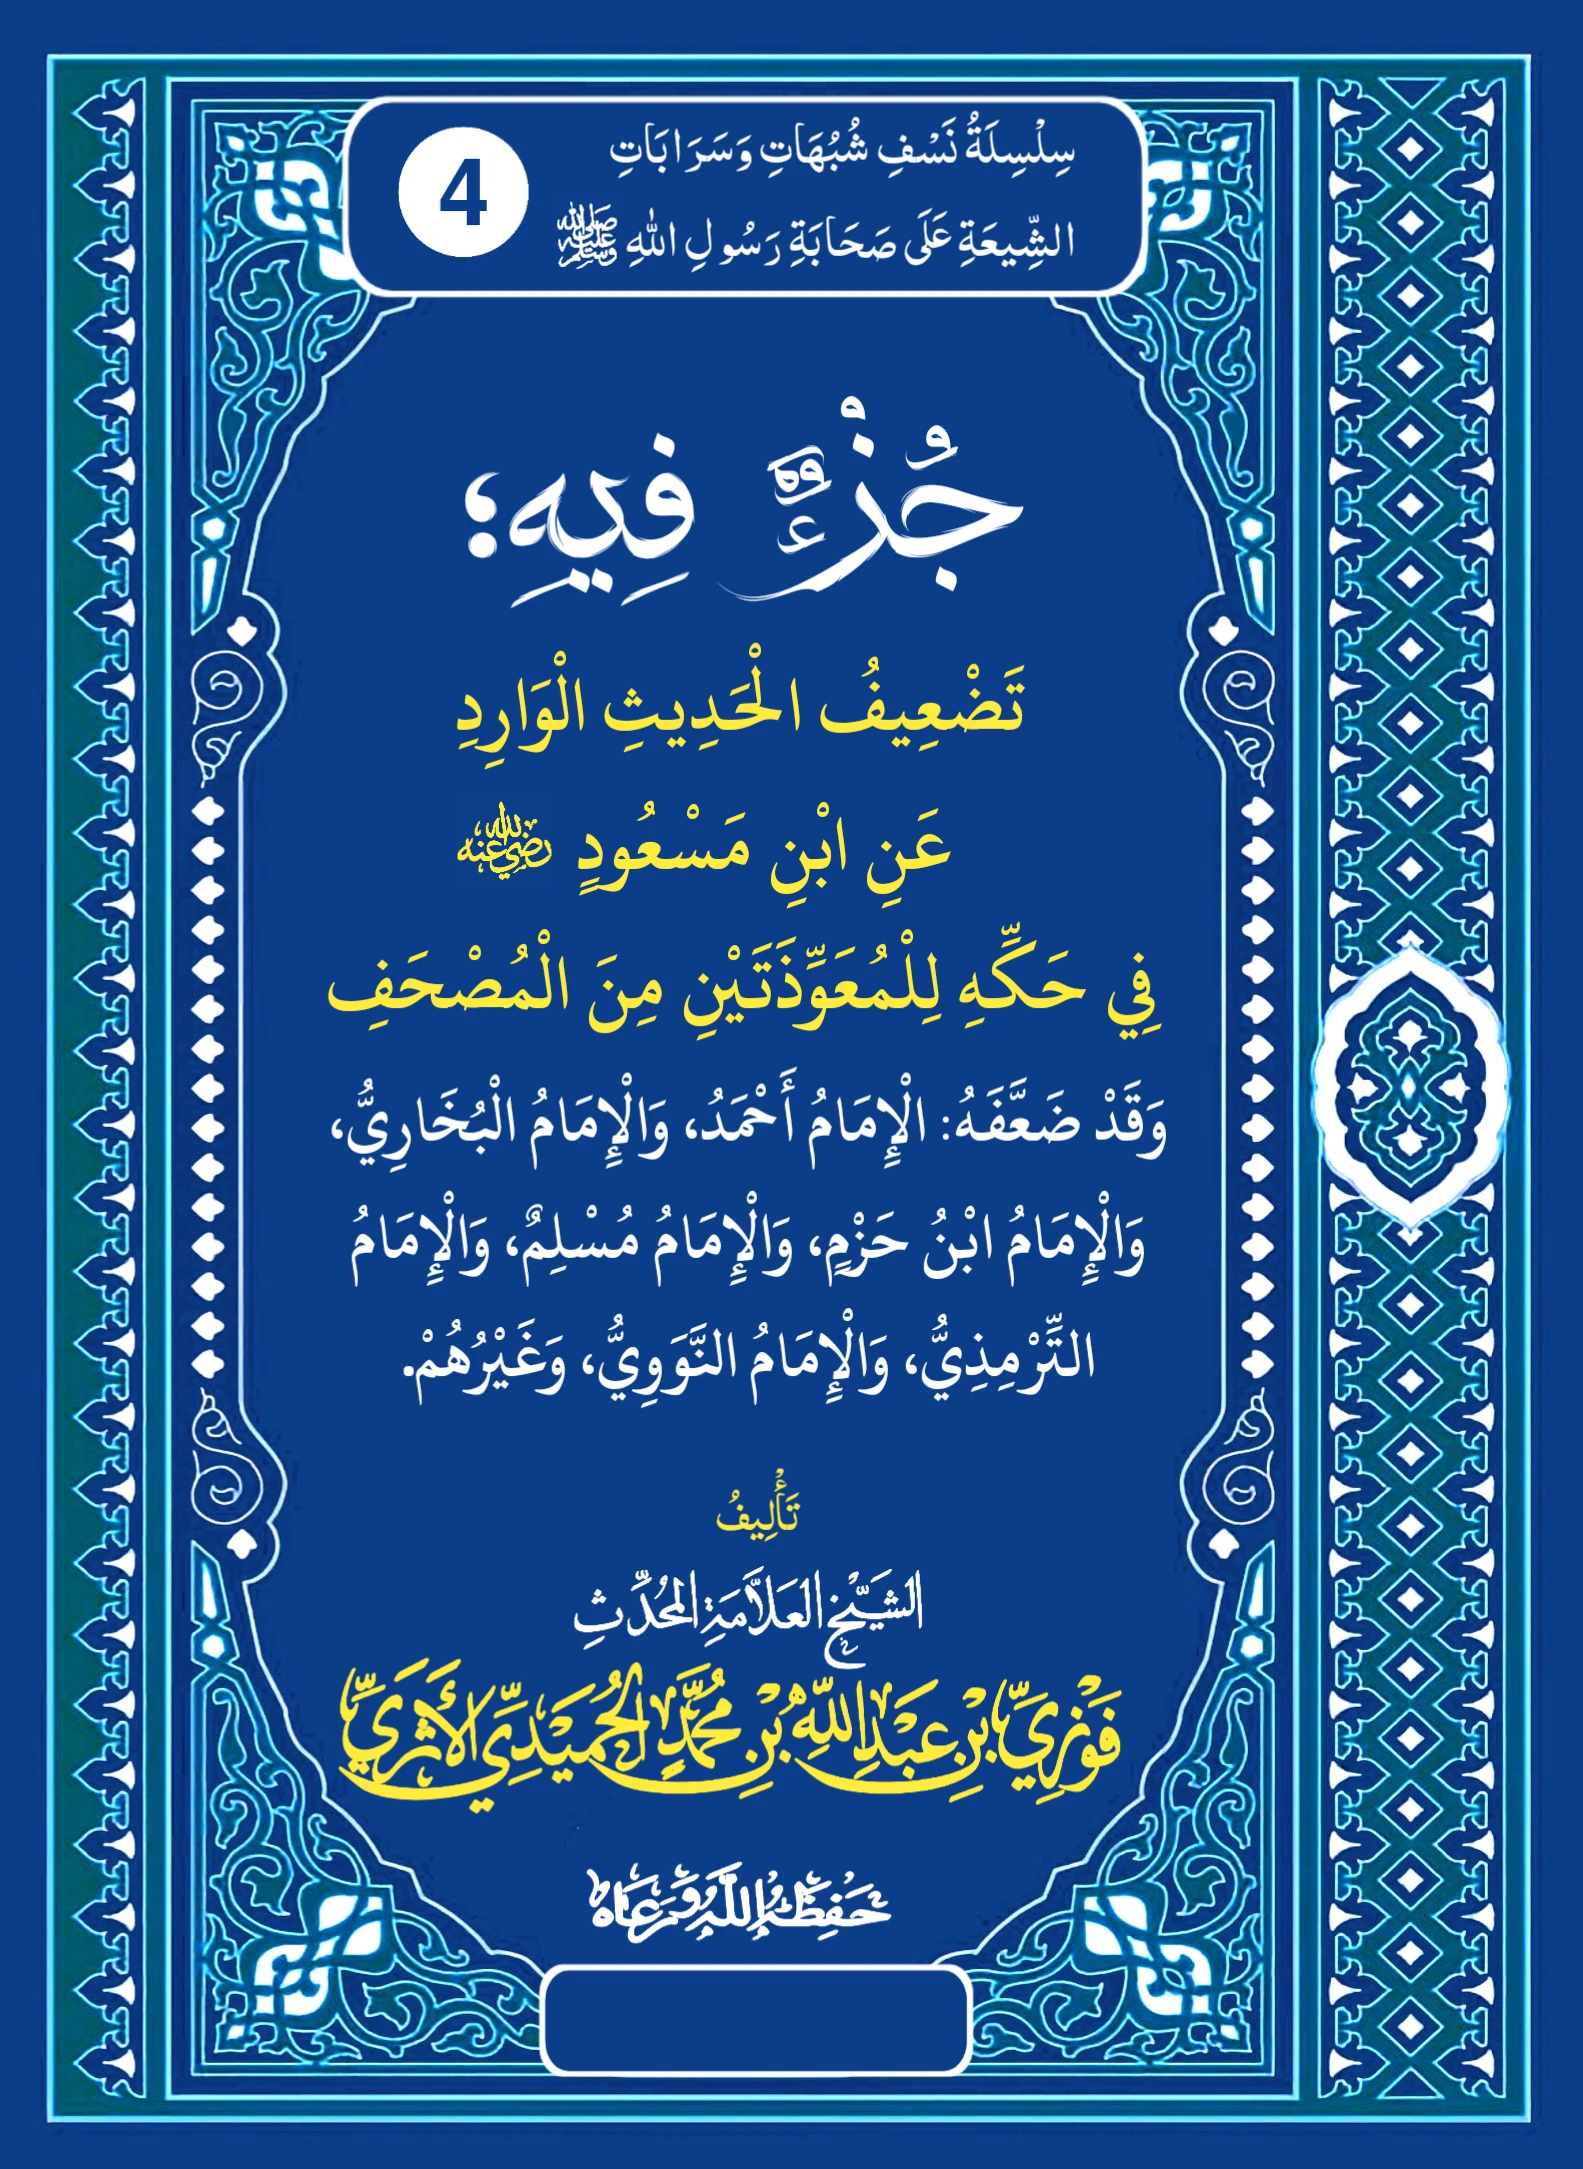 سِلْسِلَةُ نَسْفِ شُبُهَاتِ وَسَرَابَاتِ
الشِّيعَةِ عَلَى صَحَابَةِ رَسُولِ اللهِ ﷺ
4
جُزْءٌ فِيهِ؛
تَضْعِيفُ الْحَدِيثِ الْوَارِدِ
عَنِ ابْنِ مَسْعُودٍ رضي الله عنه
فِي حَكِّهِ لِلْمُعَوِّذَتَيْنِ مِنَ الْمُصْحَفِ
وَقَدْ ضَعَّفَهُ: الْإِمَامُ أَحْمَدُ، وَالْإِمَامُ الْبُخَارِيُّ،
وَالْإِمَامُ ابْنُ حَزْمٍ، وَالْإِمَامُ مُسْلِمٌ، وَالْإِمَامُ
التِّرْمِذِيُّ، وَالْإِمَامُ النَّوَوِيُّ، وَغَيْرُهُمْ.
تَأْلِيفُ
الشَّيْخِ الْعَلَّامَةِ الْمُحَدِّثِ
فَوْزِيِّ بْنِ عَبْدِ اللَّهِ بْنِ مُحَمَّدٍ الْحُمَيْدِيِّ الْأَثَرِيِّ
حَفِظَهُ اللَّهُ وَرَعَاهُ